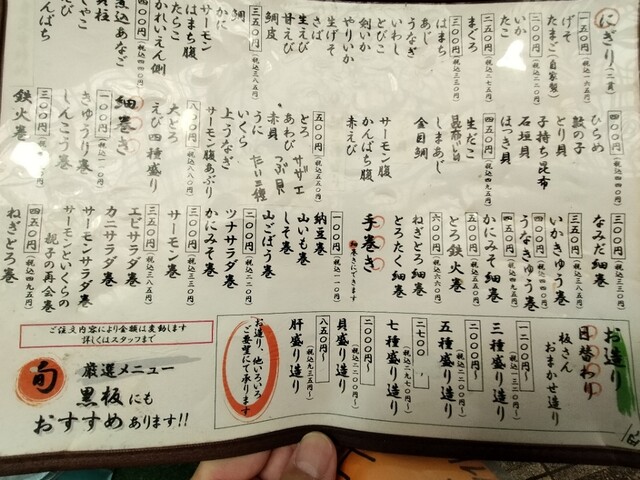 にぎり(二貫)
一五〇円(税込一六五円)
げそ
たまご(自家製)
二〇〇円(税込二二〇円)
いか
たこ
二五〇円(税込二七五円)
まぐろ
三〇〇円(税込三三〇円)
はまち
あじ
うなぎ
いわし
とびこ
剣いか
やりいか
生げそ
さば
生えび
甘えび
鯛皮
三五〇円(税込三八五円)
鯛
かに
サーモン
はまち腹
たらこ
かれいえん側
四〇〇円(税込四四〇円)
煮込あなご
貝柱
しゃこ
えび
かんぱち
三〇〇円
ひらめ
数の子
とり貝
子持ち昆布
石垣貝
ほっき貝
四五〇円(税込四九五円)
生だこ
昆布〆さば
しまあじ
金目鯛
サーモン腹
かんぱち腹
赤えび
五〇〇円(税込五五〇円)
とろ
あわび
赤貝
うに
いくら
上うなぎ
サーモン腹あぶり
サザエ
つぶ貝
八〇〇円(税込八八〇円)
大とろ
えび四種盛り
細巻き
一〇〇円(税込一一〇円)
きゅうり巻
しんこう巻
三〇〇円(税込三三〇円)
鉄火巻
三〇〇円(税込三三〇円)
なみだ細巻
三五〇円(税込三八五円)
いかきゅう巻
四〇〇円(税込四四〇円)
うなきゅう巻
四五〇円(税込四九五円)
かにみそ細巻
五〇〇円(税込五五〇円)
とろ鉄火巻
六〇〇円(税込六六〇円)
ねぎとろ細巻
とろたく細巻
手巻き
細巻きにできます
一〇〇円(税込一一〇円)
納豆巻
山いも巻
しそ巻
山ごぼう巻
二〇〇円(税込二二〇円)
ツナサラダ巻
かにみそ巻
三〇〇円(税込三三〇円)
サーモン巻
三五〇円(税込三八五円)
エビサラダ巻
カニサラダ巻
サーモンサラダ巻
サーモンといくらの
親子の再会巻
四五〇円(税込四九五円)
ねぎとろ巻
お造り
日替わり
板さん
おまかせ造り
一二〇〇円~
三種盛り造り
二〇〇〇円~
(税込二二〇〇円~)
五種盛り造り
二七〇〇
七種盛り造り
二〇〇〇円~
(税込二二〇〇円~)
貝盛り造り
八五〇円~
(税込九三五円~)
肝盛り造り
お造り、他いろいろ
ご要望にて承ります
ご注文内容により金額は変動します
詳しくはスタッフまで
旬
厳選メニュー
黒板にも
おすすめあります!!